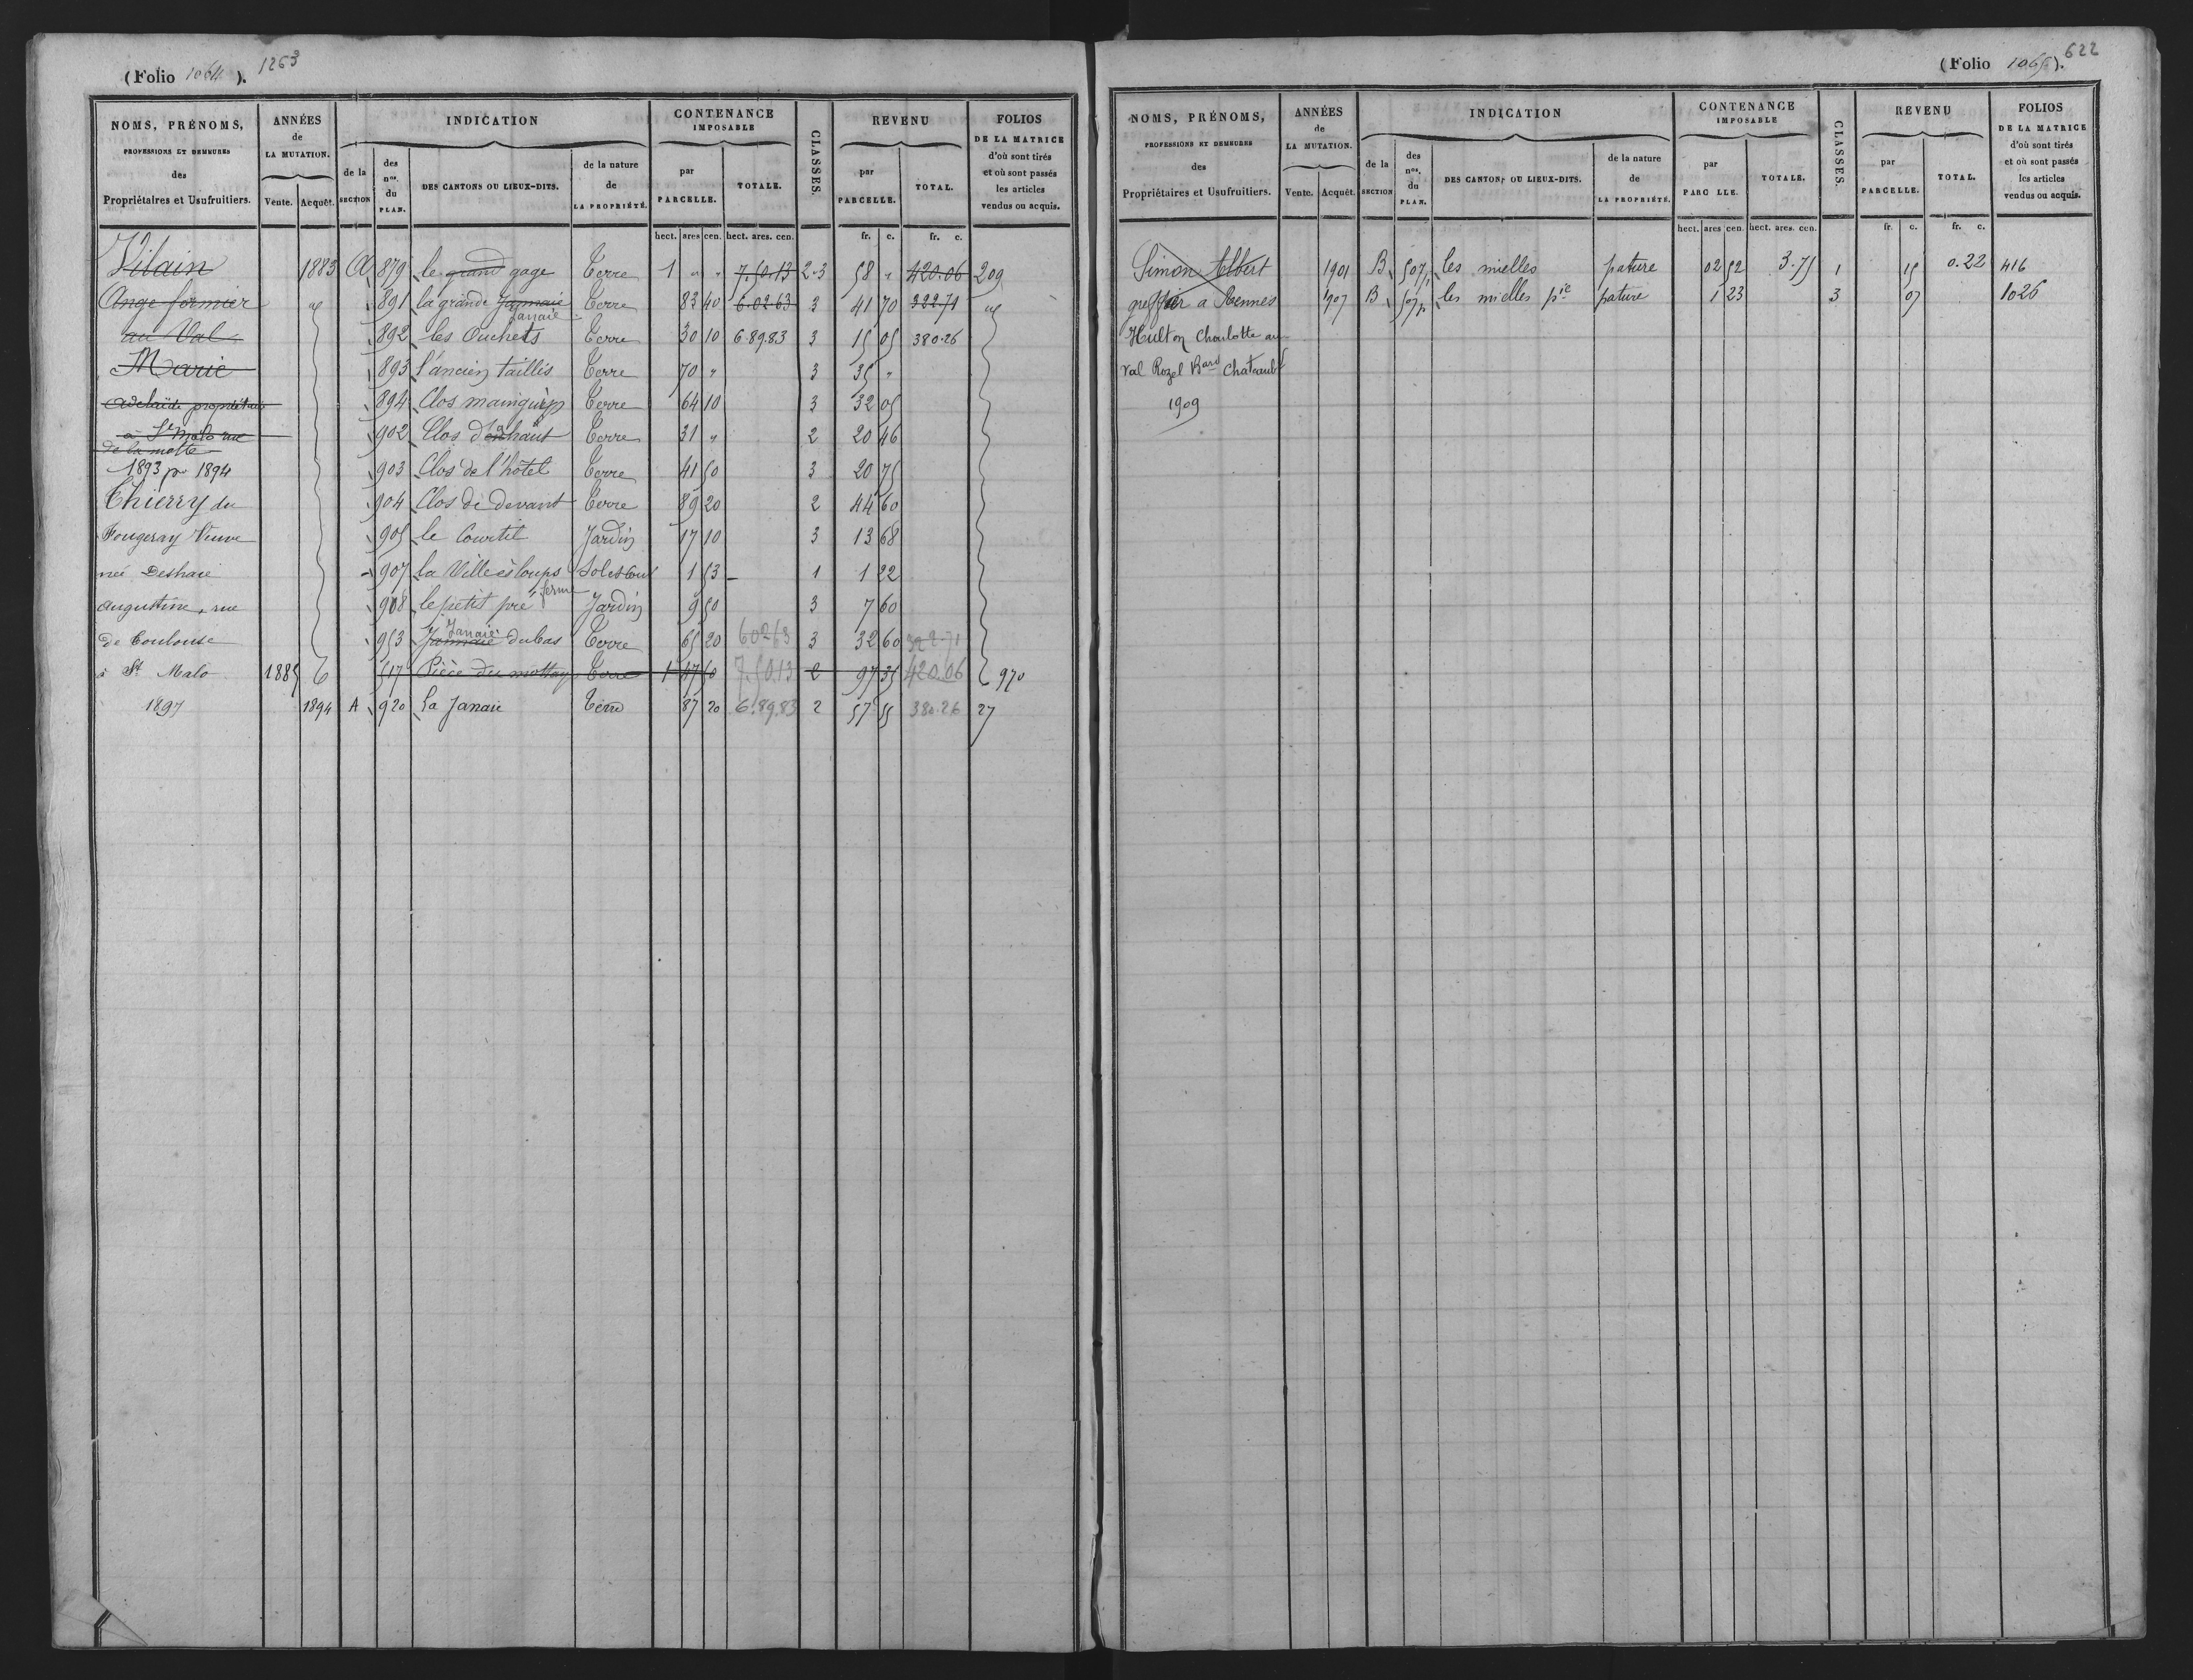 (Folio 1064). 1263
NOMS, PRÉNOMS, PROFESSIONS ET DEMEURES des Propriétaires et Usufruitiers. ANNÉES de LA MUTATION. Vente. Acquêt. INDICATION de la SECTION des nos. du PLAN. DES CANTONS OU LIEUX-DITS. de la nature de LA PROPRIÉTÉ. CONTENANCE IMPOSABLE par PARCELLE. TOTALE. CLASSES. REVENU par PARCELLE. TOTAL. FOLIOS DE LA MATRICE d'où sont tirés et où sont passés les articles vendus ou acquis.
hect. ares cen. hect. ares. cen. fr. c. fr. c.
Vilain 1883 A 879 le grand gage Terre 1 " " 7.50.13 2-3 58 " 420.06 209
Ange fermier id 891 la grande Jannaie Janaie Terre 83 40 6.02.63 3 41 70 322.71 id
au Val 892 les Ouchets Terre 30 10 6.89.83 3 15 05 380.26
Marie 893 l'ancien taillis Terre 70 " 3 35 "
Adelaïde propriétaire 894 Clos mainguin Terre 64 10 3 32 05
à St Malo rue 902 Clos d'enhaut Terre 31 " 2 20 46
de la motte
1893 pr 1894 903 Clos de l'hôtel Terre 41 50 3 20 75
Thierry du 904 Clos de devant Terre 89 20 2 44 60
Fougeray Veuve 905 le Courtil Jardin 17 10 3 13 68
née Deshaie 907 la Ville ès loups Sol et Cour 1 53 1 1 22
ferme
Augustine, rue 908 le petit pré Jardin 9 50 3 7 60
de Toulouse 953 Jannaie Janaie du bas Terre 65 20 60263 3 32 60 322.71
à St Malo 1885 C 517 Pièce du mottay Terre 1 47 50 7.50.13 2 97 35 420.06 970
1897 1894 A 920 La Janaie Terre 87 20 6.89.83 2 57 55 380.26 27
(Folio 1065). 622
NOMS, PRÉNOMS, PROFESSIONS ET DEMEURES des Propriétaires et Usufruitiers. ANNÉES de LA MUTATION. Vente. Acquêt. INDICATION de la SECTION des nos. du PLAN. DES CANTONS OU LIEUX-DITS. de la nature de LA PROPRIÉTÉ. CONTENANCE IMPOSABLE par PARCELLE. TOTALE. CLASSES. REVENU par PARCELLE. TOTAL. FOLIOS DE LA MATRICE d'où sont tirés et où sont passés les articles vendus ou acquis.
hect. ares cen. hect. ares. cen. fr. c. fr. c.
Simon Albert 1901 B 507p les mielles pature 02 52 3.75 1 15 0.22 416
greffier a Rennes 1907 B 507p les mielles pie pature 1 23 3 07 1026
Hulton Charlotte au
Val Rozel Bard Chateaubd
1909